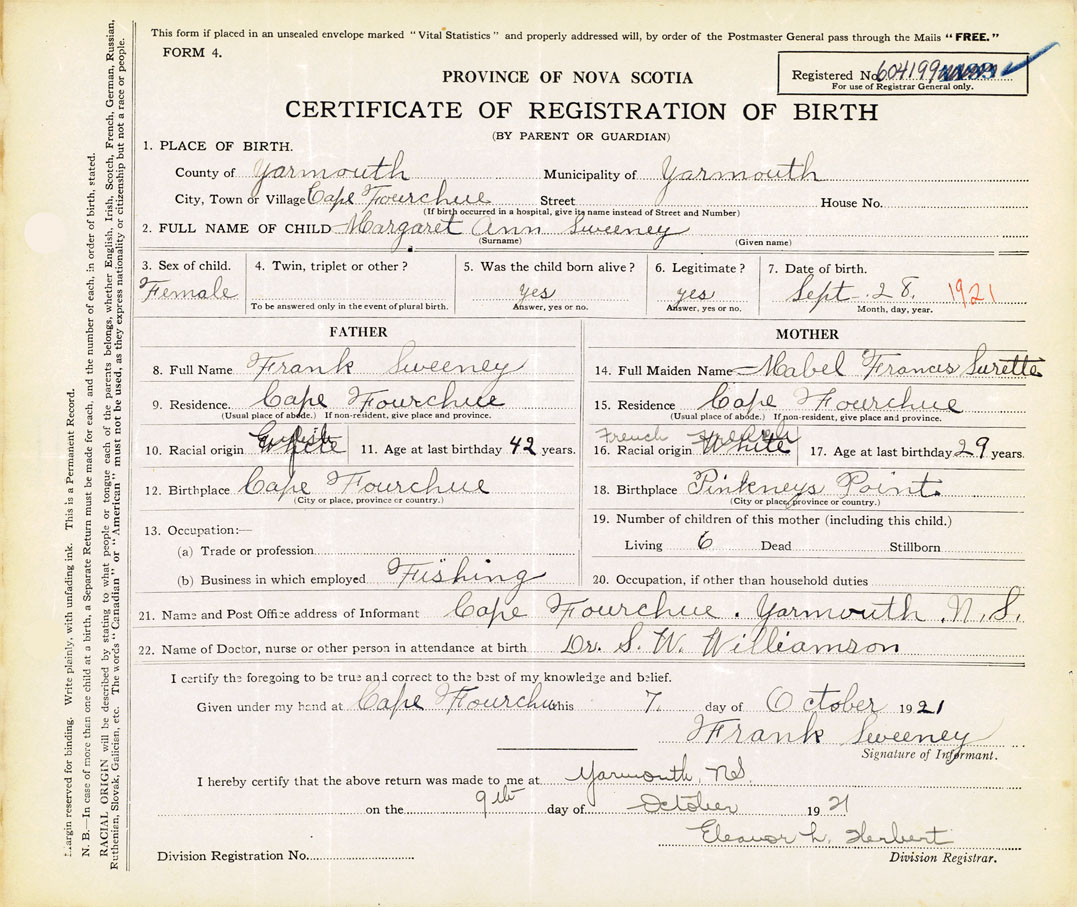 This form if placed in an unsealed envelope marked "Vital Statistics" and properly addressed will, by order of the Postmaster General pass through the Mails "FREE."
FORM 4.
PROVINCE OF NOVA SCOTIA
Registered No. 604199
For use of Registrar General only.
CERTIFICATE OF REGISTRATION OF BIRTH
(BY PARENT OR GUARDIAN)
1. PLACE OF BIRTH.
County of Yarmouth Municipality of Yarmouth
City, Town or Village Cape Fourchue Street House No.
(If birth occurred in a hospital, give its name instead of Street and Number)
2. FULL NAME OF CHILD Margaret Ann Sweeney
(Surname) (Given name)
3. Sex of child. 4. Twin, triplet or other? 5. Was the child born alive? 6. Legitimate? 7. Date of birth.
Female yes yes Sept. 28. 1921
To be answered only in the event of plural birth. Answer, yes or no. Answer, yes or no. Month, day, year.
FATHER MOTHER
8. Full Name Frank Sweeney 14. Full Maiden Name Mabel Frances Surette
9. Residence. Cape Fourchue 15. Residence Cape Fourchue
(Usual place of abode.) If non-resident, give place and province. (Usual place of abode.) If non-resident, give place and province.
English French French
10. Racial origin White 11. Age at last birthday 42 years. 16. Racial origin White 17. Age at last birthday 29 years.
12. Birthplace Cape Fourchue 18. Birthplace Pinkneys Point.
(City or place, province or country.) (City or place, province or country.)
13. Occupation:— 19. Number of children of this mother (including this child.)
(a) Trade or profession Living 6 Dead Stillborn
(b) Business in which employed Fishing 20. Occupation, if other than household duties
21. Name and Post Office address of Informant Cape Fourchue. Yarmouth. N. S.
22. Name of Doctor, nurse or other person in attendance at birth Dr. S. W. Williamson
I certify the foregoing to be true and correct to the best of my knowledge and belief.
Given under my hand at Cape Fourchue this 7. day of October 1921
Frank Sweeney
Signature of Informant.
I hereby certify that the above return was made to me at Yarmouth, N.S.
on the 9th day of October 1921
Eleanor L. Herbert
Division Registrar.
Division Registration No.
Margin reserved for binding. Write plainly, with unfading ink. This is a Permanent Record.
N. B.—In case of more than one child at a birth, a Separate Return must be made for each, and the number of each, in order of birth, stated.
RACIAL ORIGIN will be described by stating to what people or tongue each of the parents belongs, whether English, Irish, Scotch, French, German, Russian,
Ruthenian, Slovak, Galician, etc. The words "Canadian" or "American" must not be used, as they express nationality or citizenship but not a race or people.